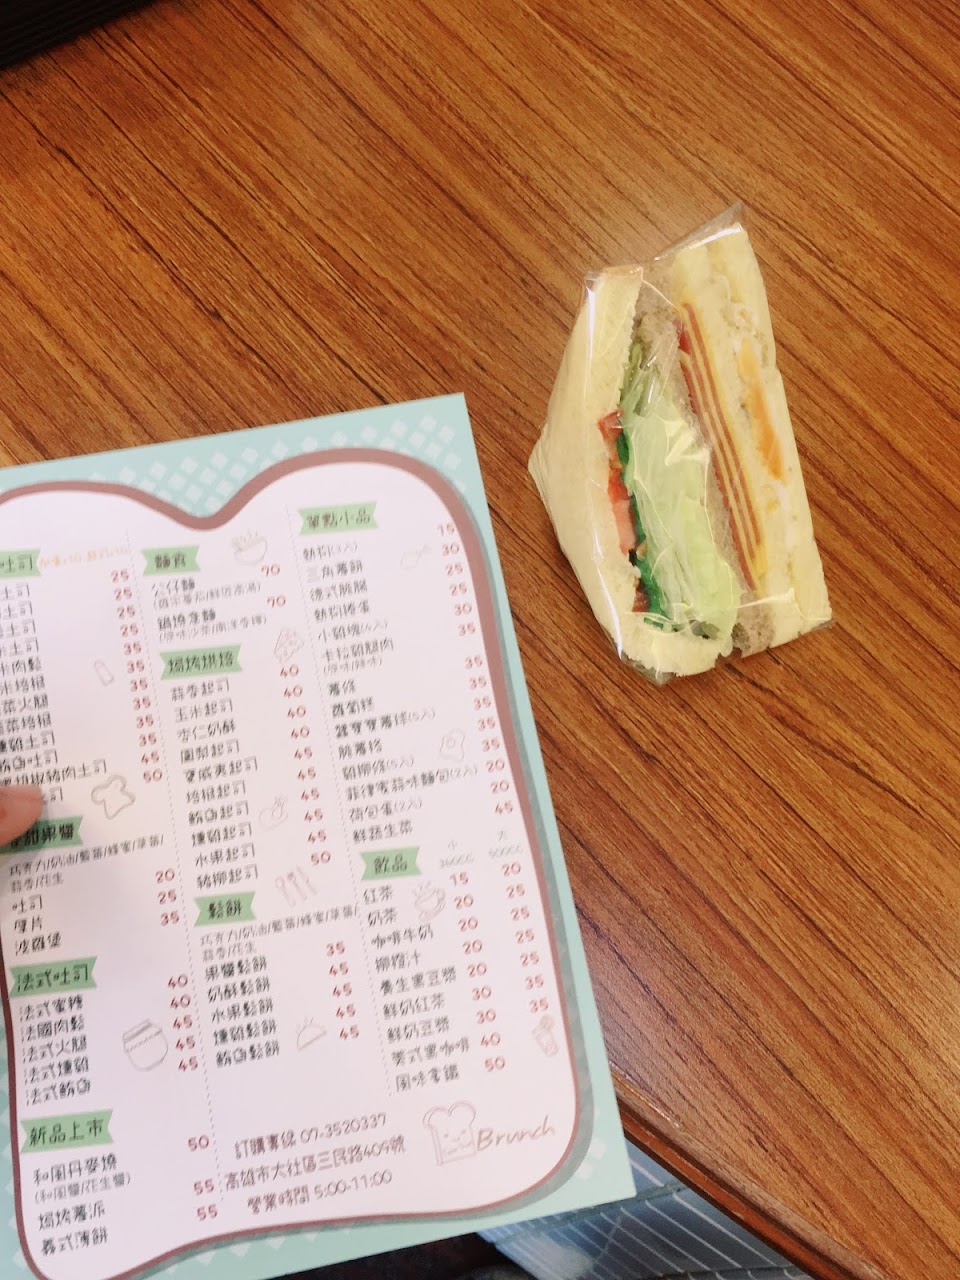 吐司
土司 25
土司 25
土司 25
土司 25
米肉鬆 35
米培根 35
菜火腿 35
蔬菜培根 35
燻雞土司 35
鮪魚吐司 45
黑胡椒豬肉土司 50
甜果醬
巧克力/奶油/藍莓/蜂蜜/草莓/
蒜香/花生
吐司 20
厚片 25
波蘿堡 35
法式吐司
法式蜜糖 40
法國肉鬆 40
法式火腿 45
法式燻雞 45
法式鮪魚 45
新品上市
和風丹麥燒 50
(和風醬/花生醬)
焗烤薯派 55
義式薄餅 55
麵食
公仔麵 70
鍋燒意麵 70
(原味/沙茶/南洋香檸)
焗烤烘焙
蒜香起司 40
玉米起司 40
杏仁奶酥 40
鳳梨起司 40
夏威夷起司 45
培根起司 45
鮪魚起司 45
燻雞起司 45
水果起司 45
豬柳起司 50
鬆餅
巧克力/奶油/藍莓/蜂蜜/草莓/
蒜香/花生
果醬鬆餅 35
奶酥鬆餅 45
水果鬆餅 45
燻雞鬆餅 45
鮪魚鬆餅 45
單點小品
熱狗(3入) 15
三角薯餅 30
德式脆腸 25
熱狗捲蛋 30
小雞塊(6入) 30
卡拉雞腿肉 35
(原味/辣味)
薯條 35
蘿蔔糕 25
蠶寶寶薯球(5入) 35
脆薯格 35
雞柳條(5入) 35
菲律賓蒜味麵包(2入) 20
荷包蛋(2入) 20
鮮蔬生菜 45
飲品
小 大
360CC 500CC
紅茶 15 20
奶茶 20 25
咖啡牛奶 20 25
柳橙汁 20 25
養生黑豆漿 20 25
鮮奶紅茶 30 35
鮮奶豆漿 30 35
美式黑咖啡 40
風味拿鐵 50
訂購專線 07-3520337
高雄市大社區三民路409號
營業時間 5:00-11:00
Brunch